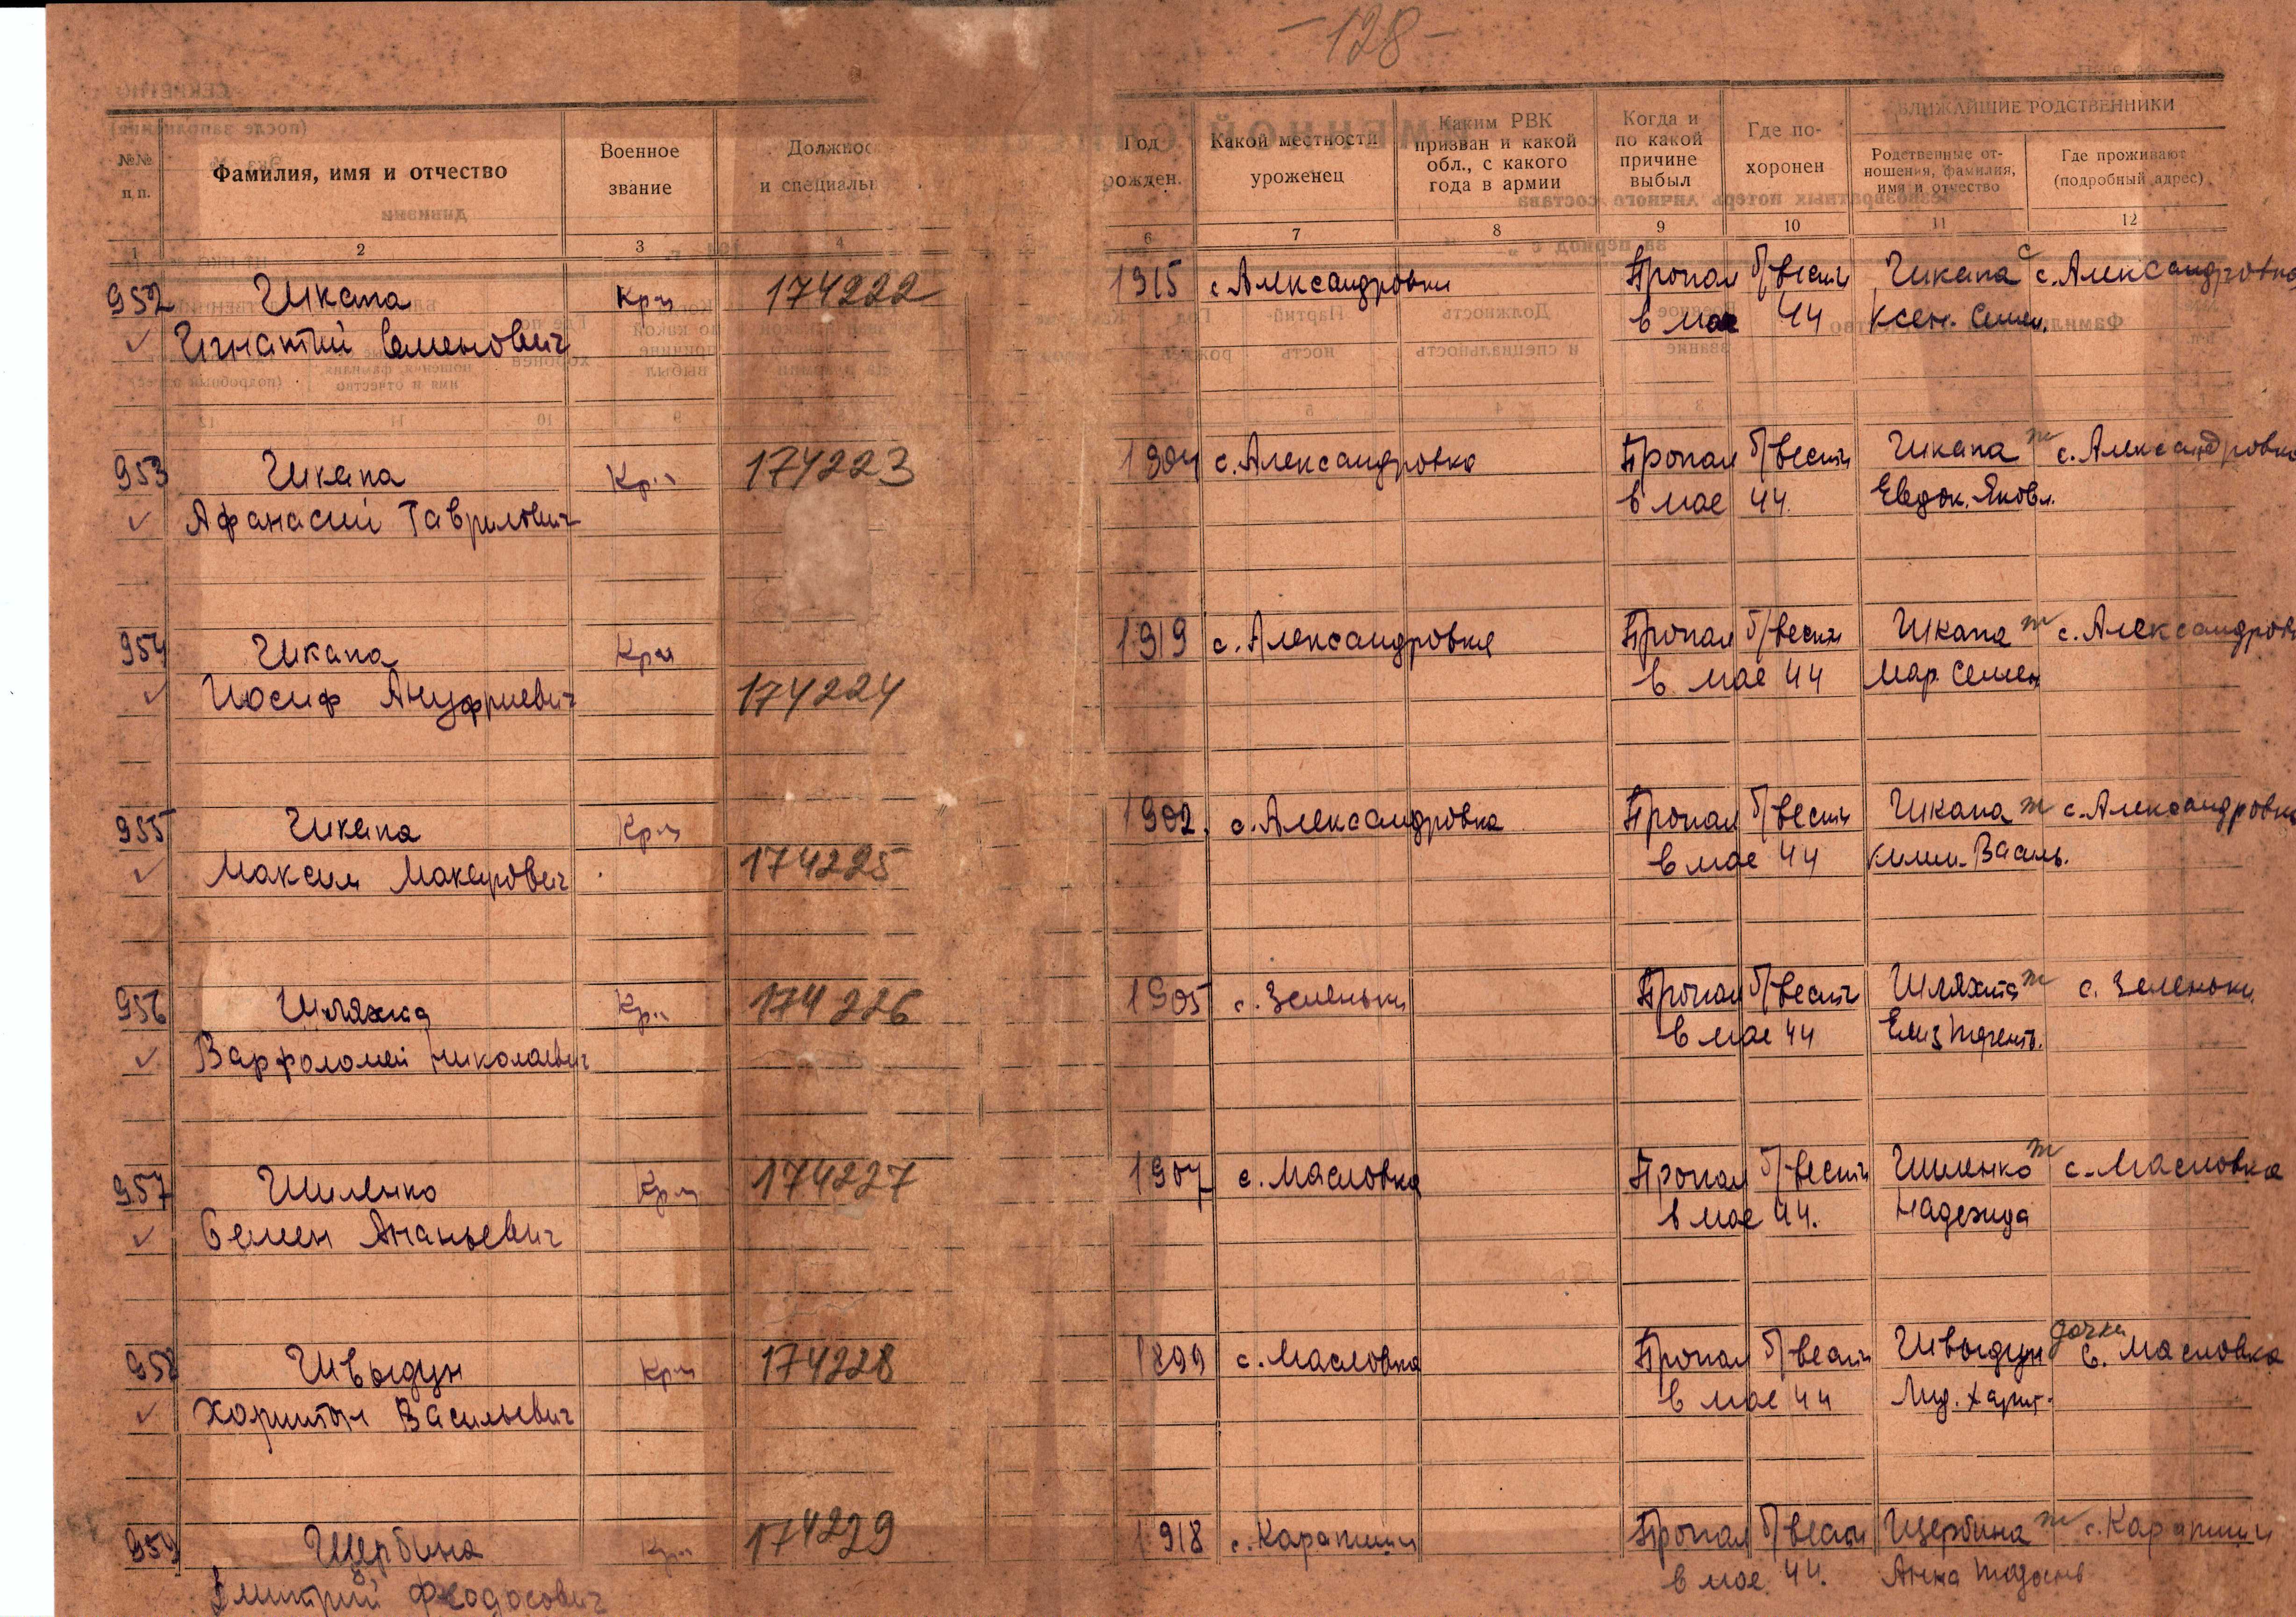 -128-
БЛИЖАЙШИЕ РОДСТВЕННИКИ
№№ п. п.
Фамилия, имя и отчество
Военное звание
Должнос
и специальн
Год рожден.
Какой местности уроженец
Каким РВК призван и какой обл., с какого года в армии
Когда и по какой причине выбыл
Где по-
хоронен
Родственные от-
ношения, фамилия,
имя и отчество
Где проживают
(подробный адрес)
1 2 3 4 6 7 8 9 10 11 12
952 Шкапа Кр-ц 174222 1915 с Александровки Пропал б/вести Шкапа с с. Александровка
Игнатий Семенович в мае 44 Ксен. Семен.
953 Шкапа Кр-ц 174223 1904 с. Александровка Пропал б/вести Шкапа ж с. Александровка
Афанасий Гаврилович в мае 44. Евдок. Яковл.
954 Шкапа Кр-ц 1919 с. Александровка Пропал б/вести Шкапа ж с. Александров
Иосиф Ануфриевич 174224 в мае 44 Мар. Семен
955 Шкапа Кр-ц 1902. с. Александровка Пропал б/вести Шкапа ж с. Александровка
Максим Макарович 174225 в мае 44 Василь.
956 Шляхта Кр-ц 174226 1905 с. Зеленьки Пропал б/вести Шляхта ж с. Зеленьки
Варфоломей Николаевич в мае 44 Елиз Терент.
957 Шиленко Кр-ц 174227 1907 с. Масловка Пропал б/вести Шиленко ж с. Масловка
Семен Ананьевич в мае 44. Надежда
958 Швыдун Кр-ц 174228 1899 с. Масловка Пропал б/вести Швыдун дочка с. Масловка
Харитон Васильевич в мае 44 Лид. Харит.
959 Щербина Кр-ц 174229 1918 с. Карапиши Пропал б/вести Щербина ж с. Карапиши
Дмитрий Феодосович в мае 44. Анна